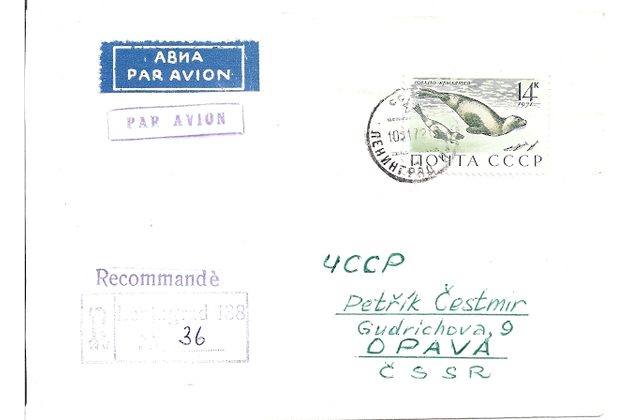 АВИА
PAR AVION
PAR AVION
14К
1971
ПОЧТА СССР
ЛЕНИНГРАД
Recommandè
Leningrad 138
36
ЧССР
Petřík Čestmir
Gudrichova, 9
OPAVA
ČSSR